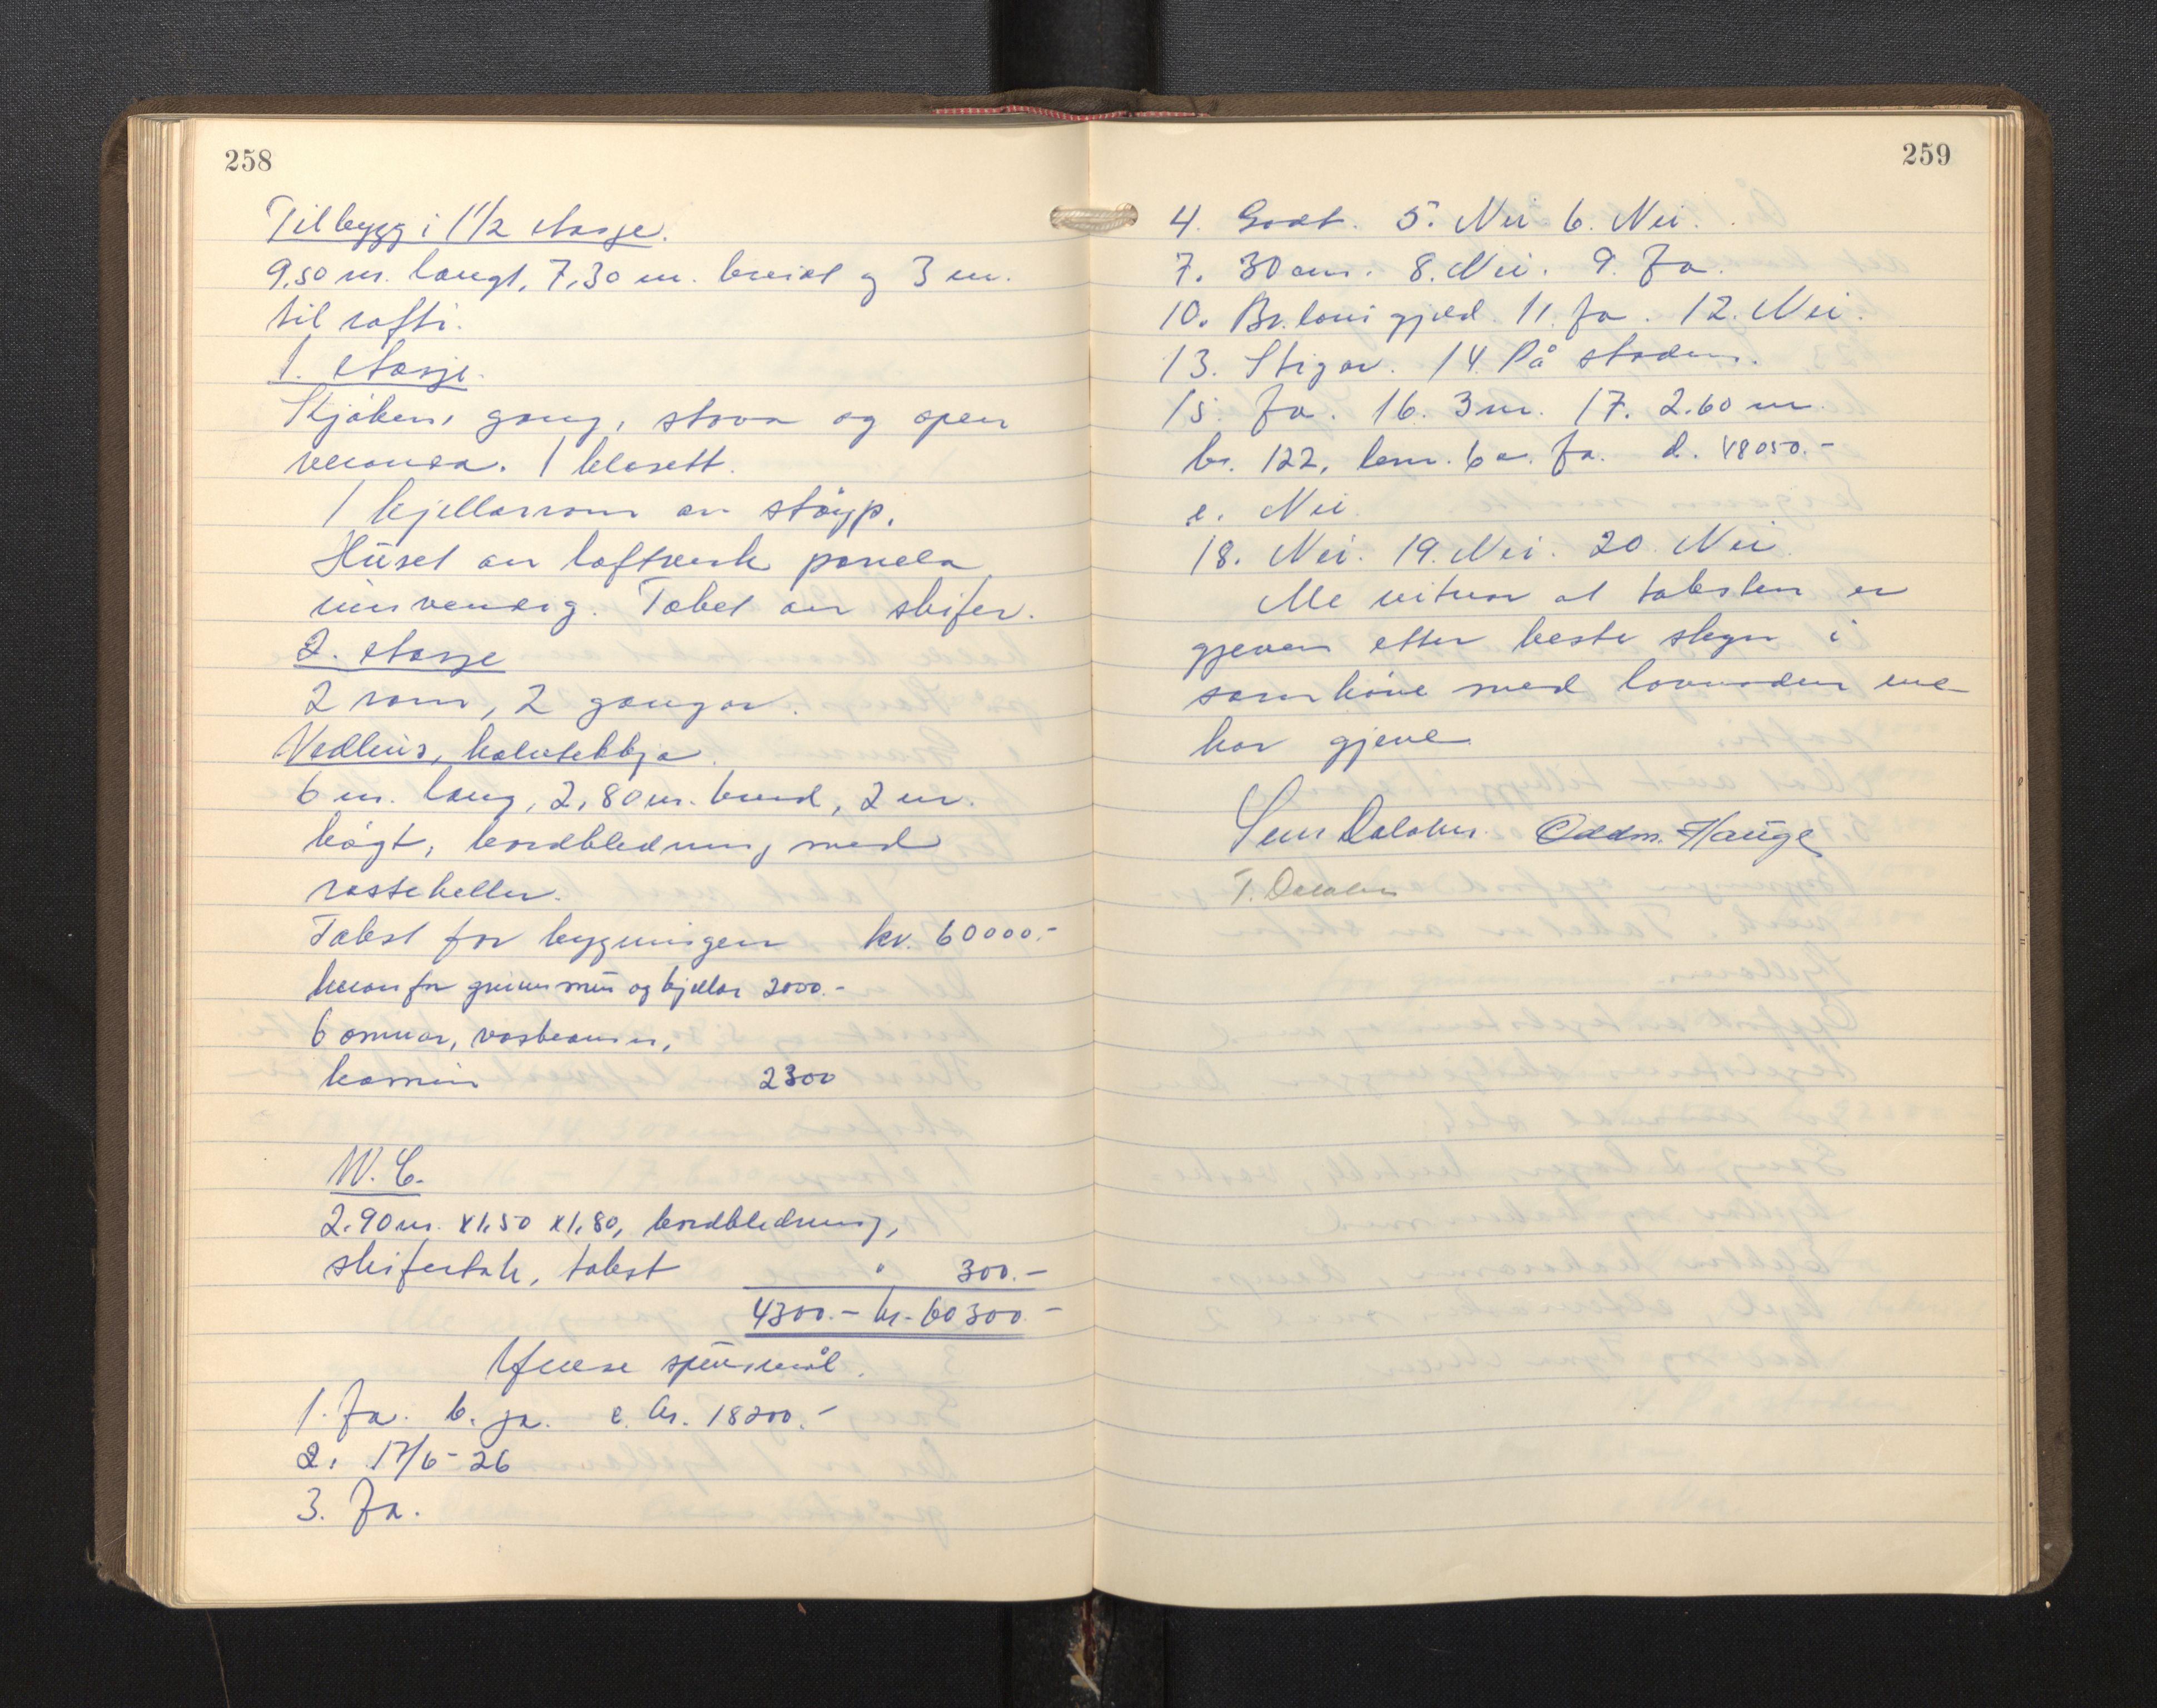 258
Tilbygg i 1 1/2 etasje.
9,50 m. langt, 7,30 m. breidt og 3 m.
til rafti.
1. etasje.
Kjøken, gang, stova og open
veranda. 1 klosett.
1 kjellarrom av støyp.
Huset av laftverk panela
innvendig. Taket av skifer.
2. etasje
2 rom, 2 gangar.
Vedhus,
6 m. lang, 2,80 m. breid, 2 m.
høgt, bordkledning med
rasteheller.
Takst for bygningen kr. 60000.-
herav for grunnmur og kjellar 2000.-
6 omnar, vaskeomn,
kamin 2300
W. C.
2.90 m. x 1,50 x 1,80, bordkledning,
skifertak, takst " 300.-
4300.- kr. 60300.-
Ymse spursmål.
1. Ja. b. ja. c. kr. 18200.-
2. 17/6-26
3. Ja.
259
4. Godt. 5. Nei 6. Nei.
7. 30 cm. 8. Nei. 9. Ja.
10. gjeld. 11. Ja. 12. Nei.
13. Stigar. 14. På staden.
15. Ja. 16. 3 m. 17. 2.60 m.
br. 122, 6 a. Ja. d. 48050.-
e. Nei.
18. Nei. 19. Nei. 20. Nei.
Me vitnar at taksten er
gjeven etter beste skyn i
samhøve med lovnaden me
har gjeve.
Dalaker. Oddm. Hauge
T. Dalaker